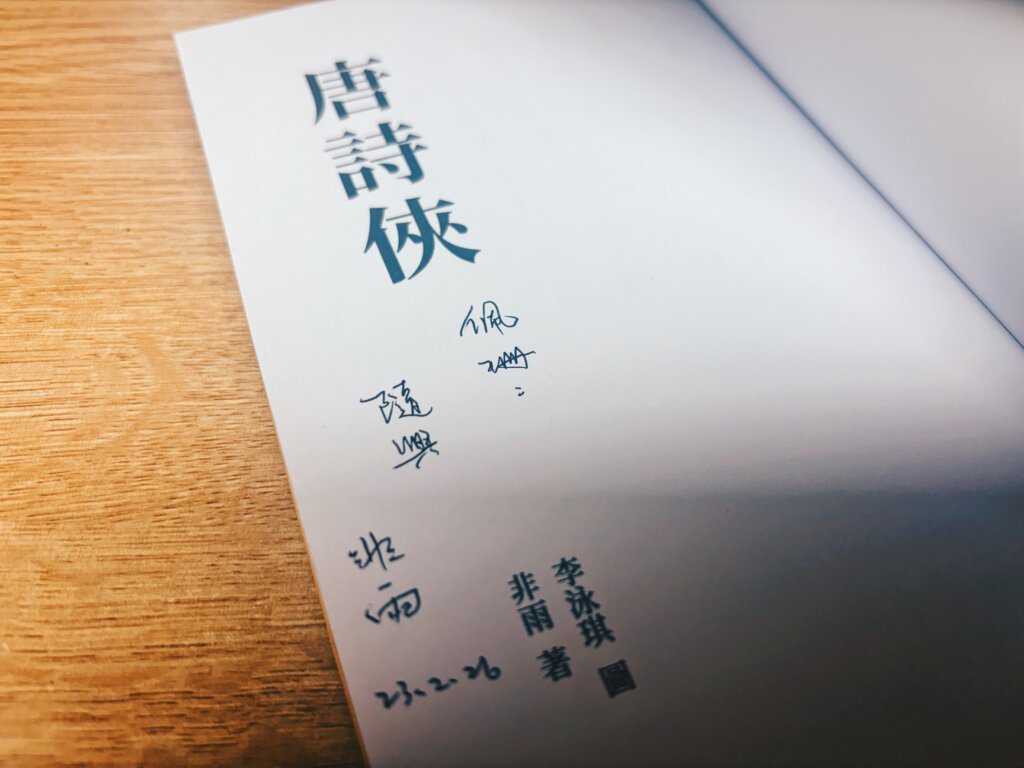 唐詩俠
佩珊：
隨興
非雨
23.2.26
李泳琪 圖
非雨 著